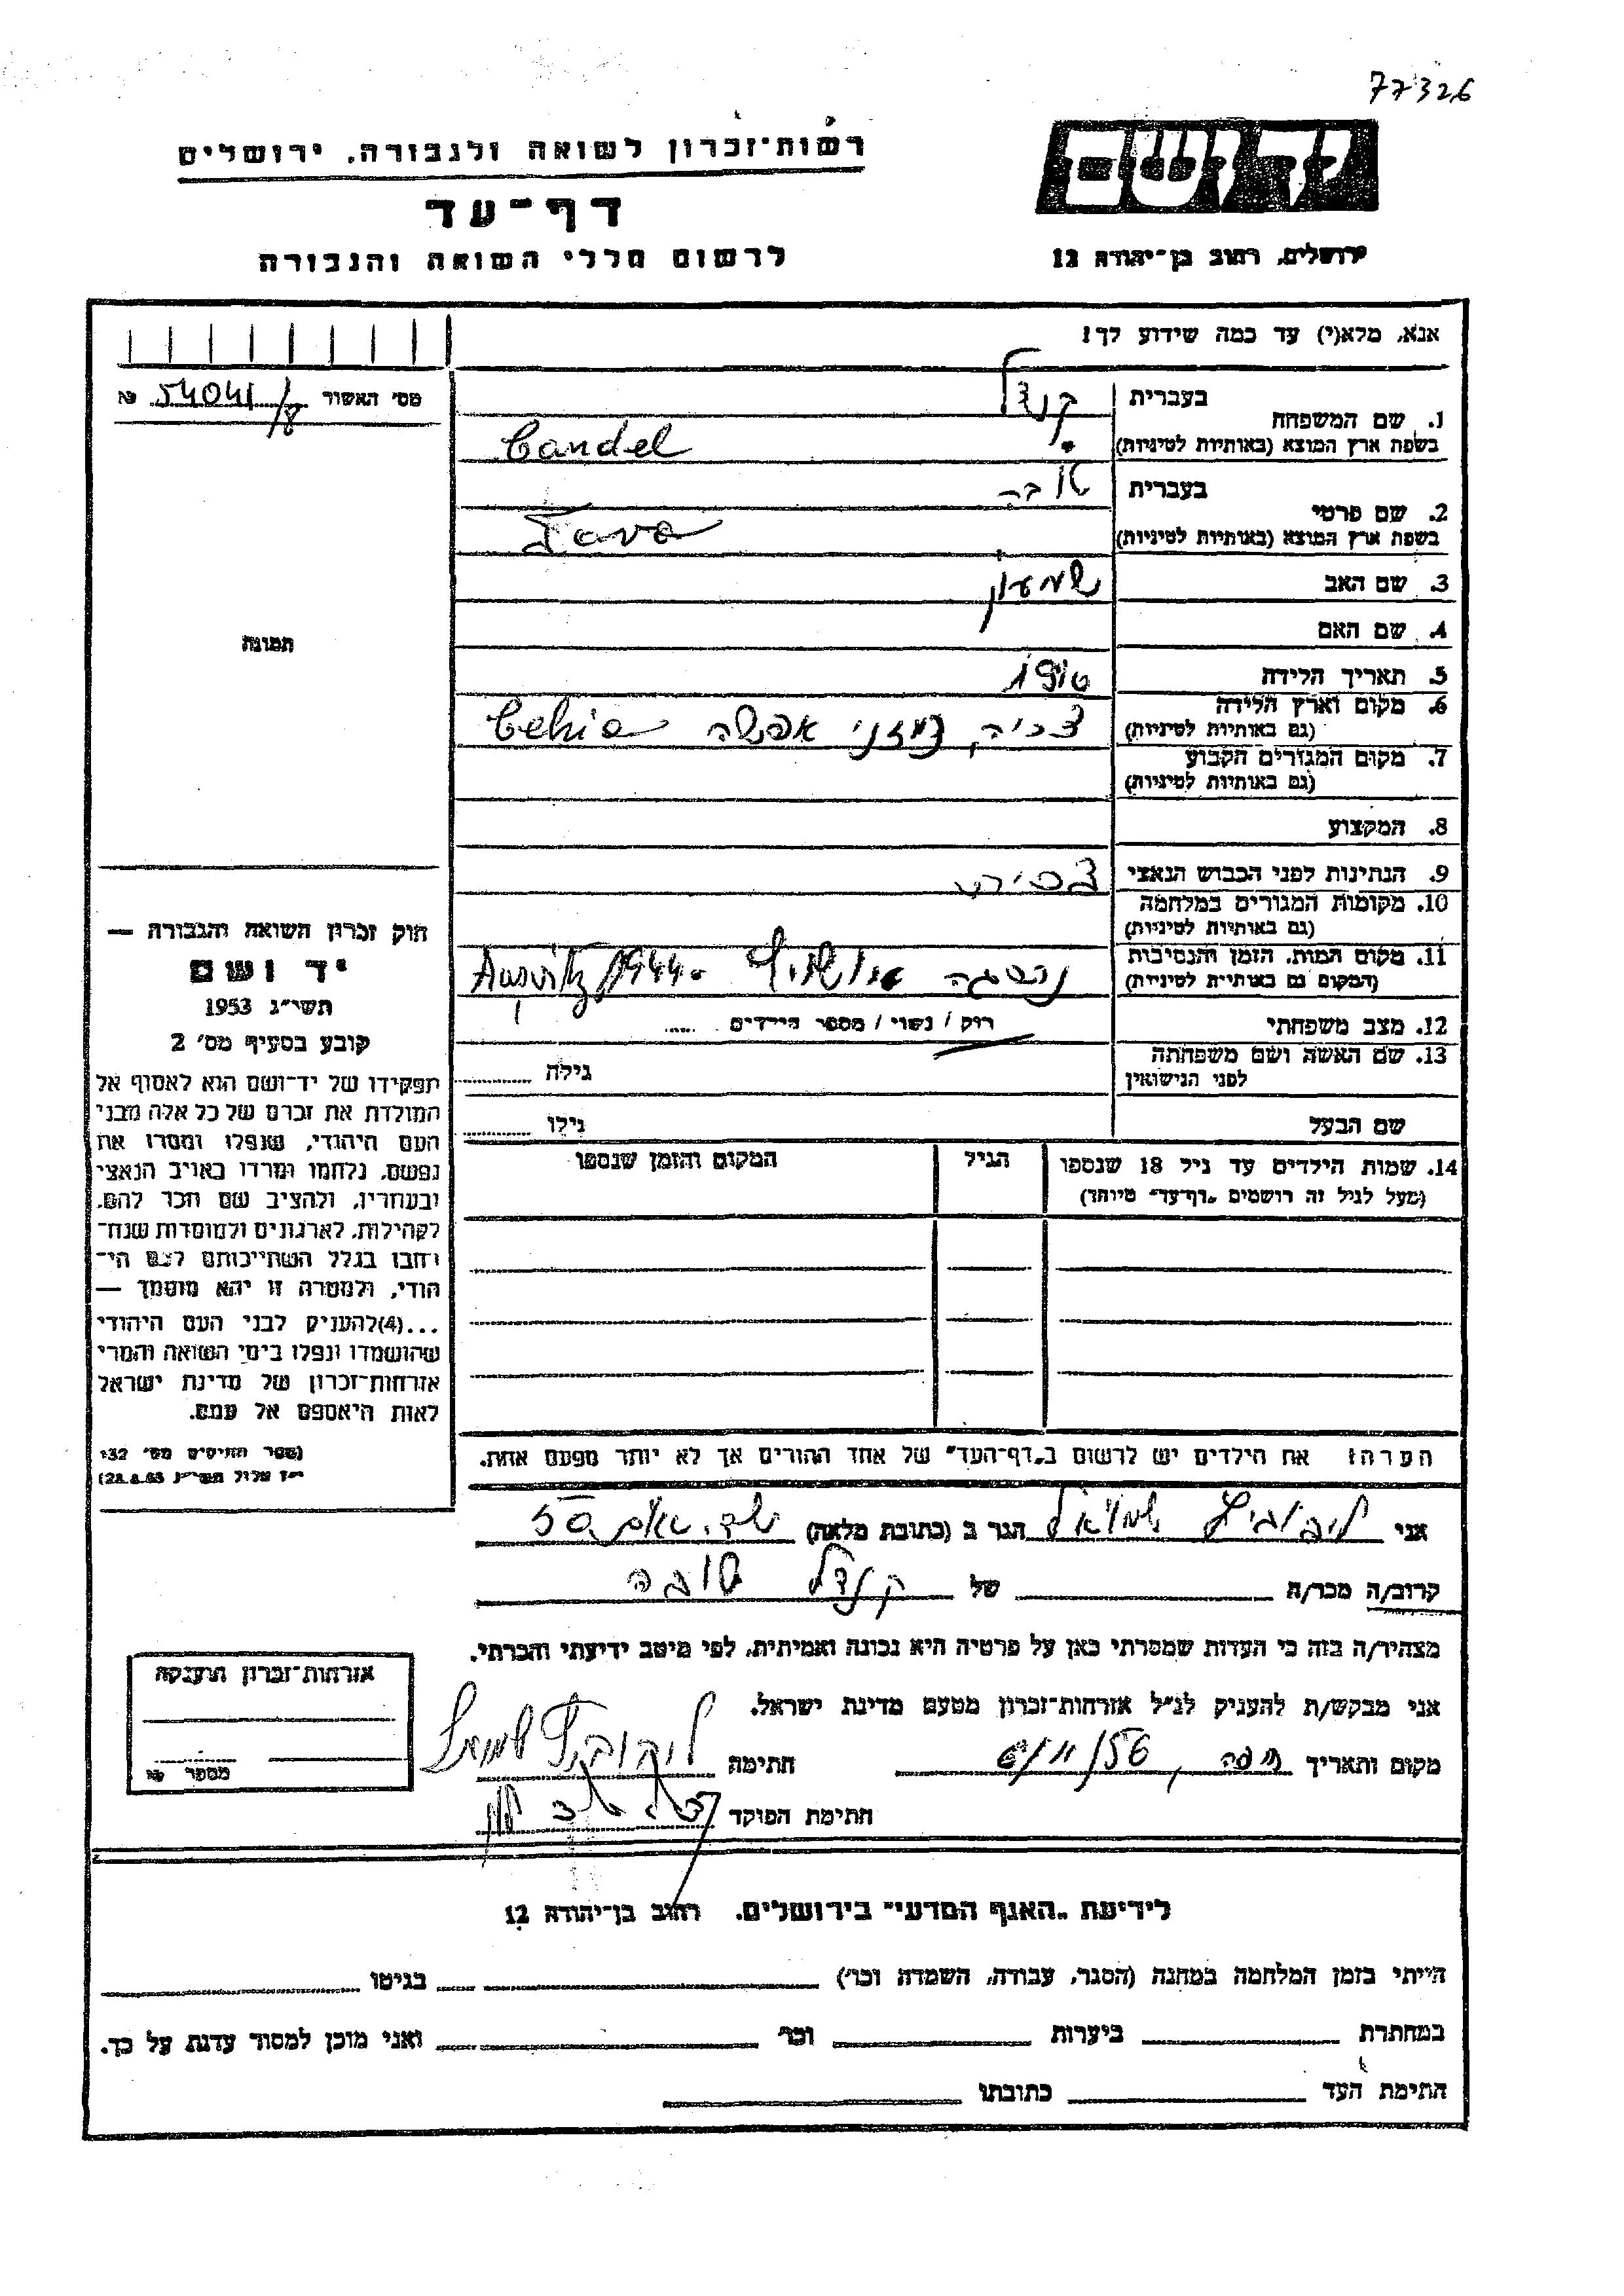 77326
יד ושם
רשות־זכרון לשואה ולגבורה, ירושלים
דף־עד
לרשום חללי השואה והגבורה
ירושלים, רחוב בן־יהודה 12
אנא, מלא(י) עד כמה שידוע לך!
מס׳ האשור 54041/8 №
תמונה
1. שם המשפחה
בעברית קנדל
בשפת ארץ המוצא (באותיות לטיניות) Candel
2. שם פרטי
בעברית טובה
בשפת ארץ המוצא (באותיות לטיניות) Tova
3. שם האב שמעון
4. שם האם
5. תאריך הלידה
6. מקום וארץ הלידה
(גם באותיות לטיניות) צכיה, Cehia
7. מקום המגורים הקבוע
(גם באותיות לטיניות)
8. המקצוע
9. הנתינות לפני הכבוש הנאצי צכית
10. מקומות המגורים במלחמה
(גם באותיות לטיניות)
11. מקום המות, הזמן והנסיבות
(המקום גם באותיות לטיניות) נספתה אושויץ 1944 Ausvitz
12. מצב משפחתי רוק / נשוי / מספר הילדים
13. שם האשה ושם משפחתה
לפני הנישואין גילה
שם הבעל גילו
14. שמות הילדים עד גיל 18 שנספו הגיל המקום והזמן שנספו
(מעל לגיל זה רושמים „דף־עד״ מיוחד)
הערה: את הילדים יש לרשום ב„דף־העד״ של אחד ההורים אך לא יותר מפעם אחת.
חוק זכרון השואה והגבורה —
יד ושם
תשי״ג 1953
קובע בסעיף מס׳ 2
תפקידו של יד־ושם הוא לאסוף אל
המולדת את זכרם של כל אלה מבני
העם היהודי, שנפלו ומסרו את
נפשם, נלחמו ומרדו באויב הנאצי
ובעוזריו, ולהציב שם וזכר להם,
לקהילות, לארגונים ולמוסדות שנח־
רבו בגלל השתייכותם לעם הי־
הודי, ולמטרה זו יהא מוסמך —
...(4)להעניק לבני העם היהודי
שהושמדו ונפלו בימי השואה והמרי
אזרחות־זכרון של מדינת ישראל
לאות היאספם אל עמם.
(ספר החוקים מס׳ 132
י״ז אלול תשי״ג 28.8.53)
אני ליבוביץ שמואל הגר ב (כתובת מלאה)
קרוב/ה מכר/ה של קנדל טובה
מצהיר/ה בזה כי העדות שמסרתי כאן על פרטיה היא נכונה ואמיתית, לפי מיטב ידיעתי והכרתי.
אני מבקש/ת להעניק לנ״ל אזרחות־זכרון מטעם מדינת ישראל.
מקום ותאריך חיפה, חתימה ליבוביץ שמואל
חתימת הפוקד
אזרחות־זכרון הוענקה
מספר №
לידיעת „האגף המדעי״ בירושלים, רחוב בן־יהודה 12
הייתי בזמן המלחמה במחנה (הסגר, עבודה, השמדה וכו׳) בגיטו
במחתרת ביערות וכו׳ ואני מוכן למסור עדות על כך.
חתימת העד כתובתו